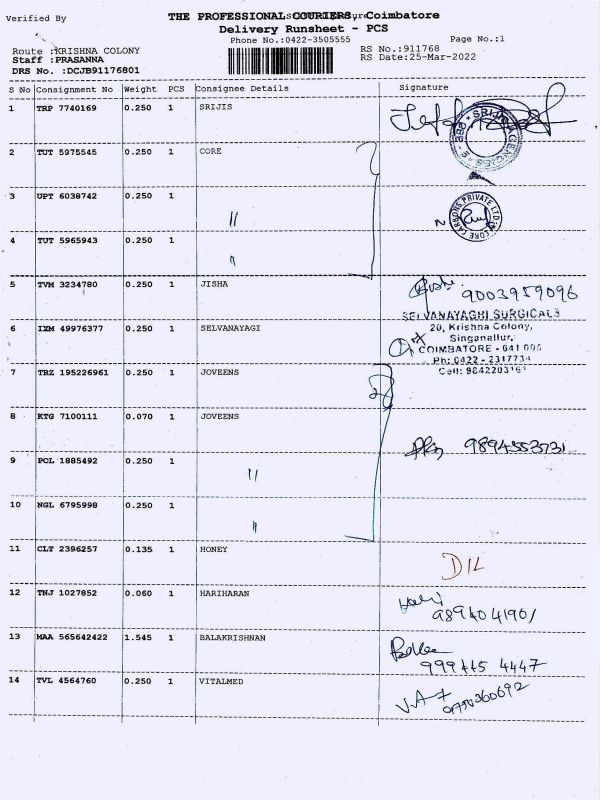 Verified By
THE PROFESSIONAL COURIERS, Coimbatore
Delivery Runsheet - PCS
Phone No.:0422-3505555
Page No.:1
Route :KRISHNA COLONY
RS No.:911768
Staff :PRASANNA
RS Date:25-Mar-2022
DRS No. :DCJB91176801
S No Consignment No Weight PCS Consignee Details Signature
1 TRP 7740169 0.250 1 SRIJIS
2 TUT 5975545 0.250 1 CORE
3 UPT 6038742 0.250 1 "
4 TUT 5965943 0.250 1 "
5 TVM 3234780 0.250 1 JISHA 9003959096
SELVANAYAGHI SURGICALS
6 IXM 49976377 0.250 1 SELVANAYAGI 20, Krishna Colony,
Singanallur,
COIMBATORE - 641 005
Ph: 0422 - 2317734
7 TRZ 195226961 0.250 1 JOVEENS
8 KTG 7100111 0.070 1 JOVEENS
9 PCL 1885492 0.250 1 "
10 NGL 6795998 0.250 1 "
11 CLT 2396257 0.135 1 HONEY D/L
12 TNJ 1027852 0.060 1 HARIHARAN Hari
9894041901
13 MAA 565642422 1.545 1 BALAKRISHNAN
999445 4447
14 TVL 4564760 0.250 1 VITALMED